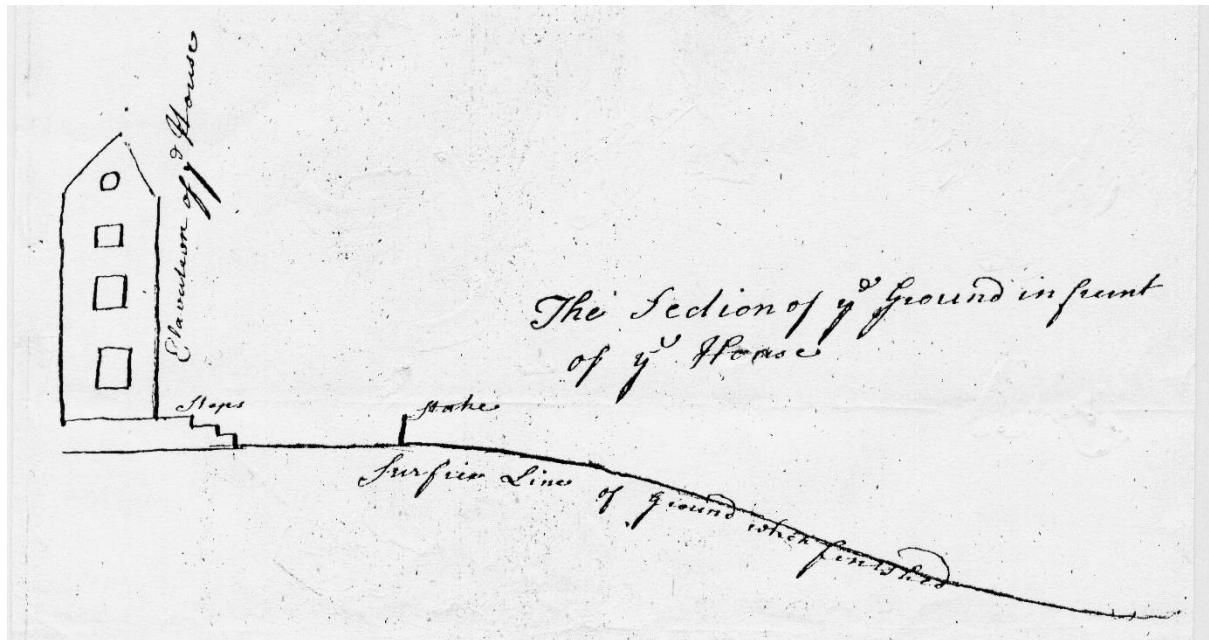 Elavation of yᵉ House
The Section of yᵉ Ground in frunt
of yᵉ House
Steps
Stake
Surfice Line of Ground when finished